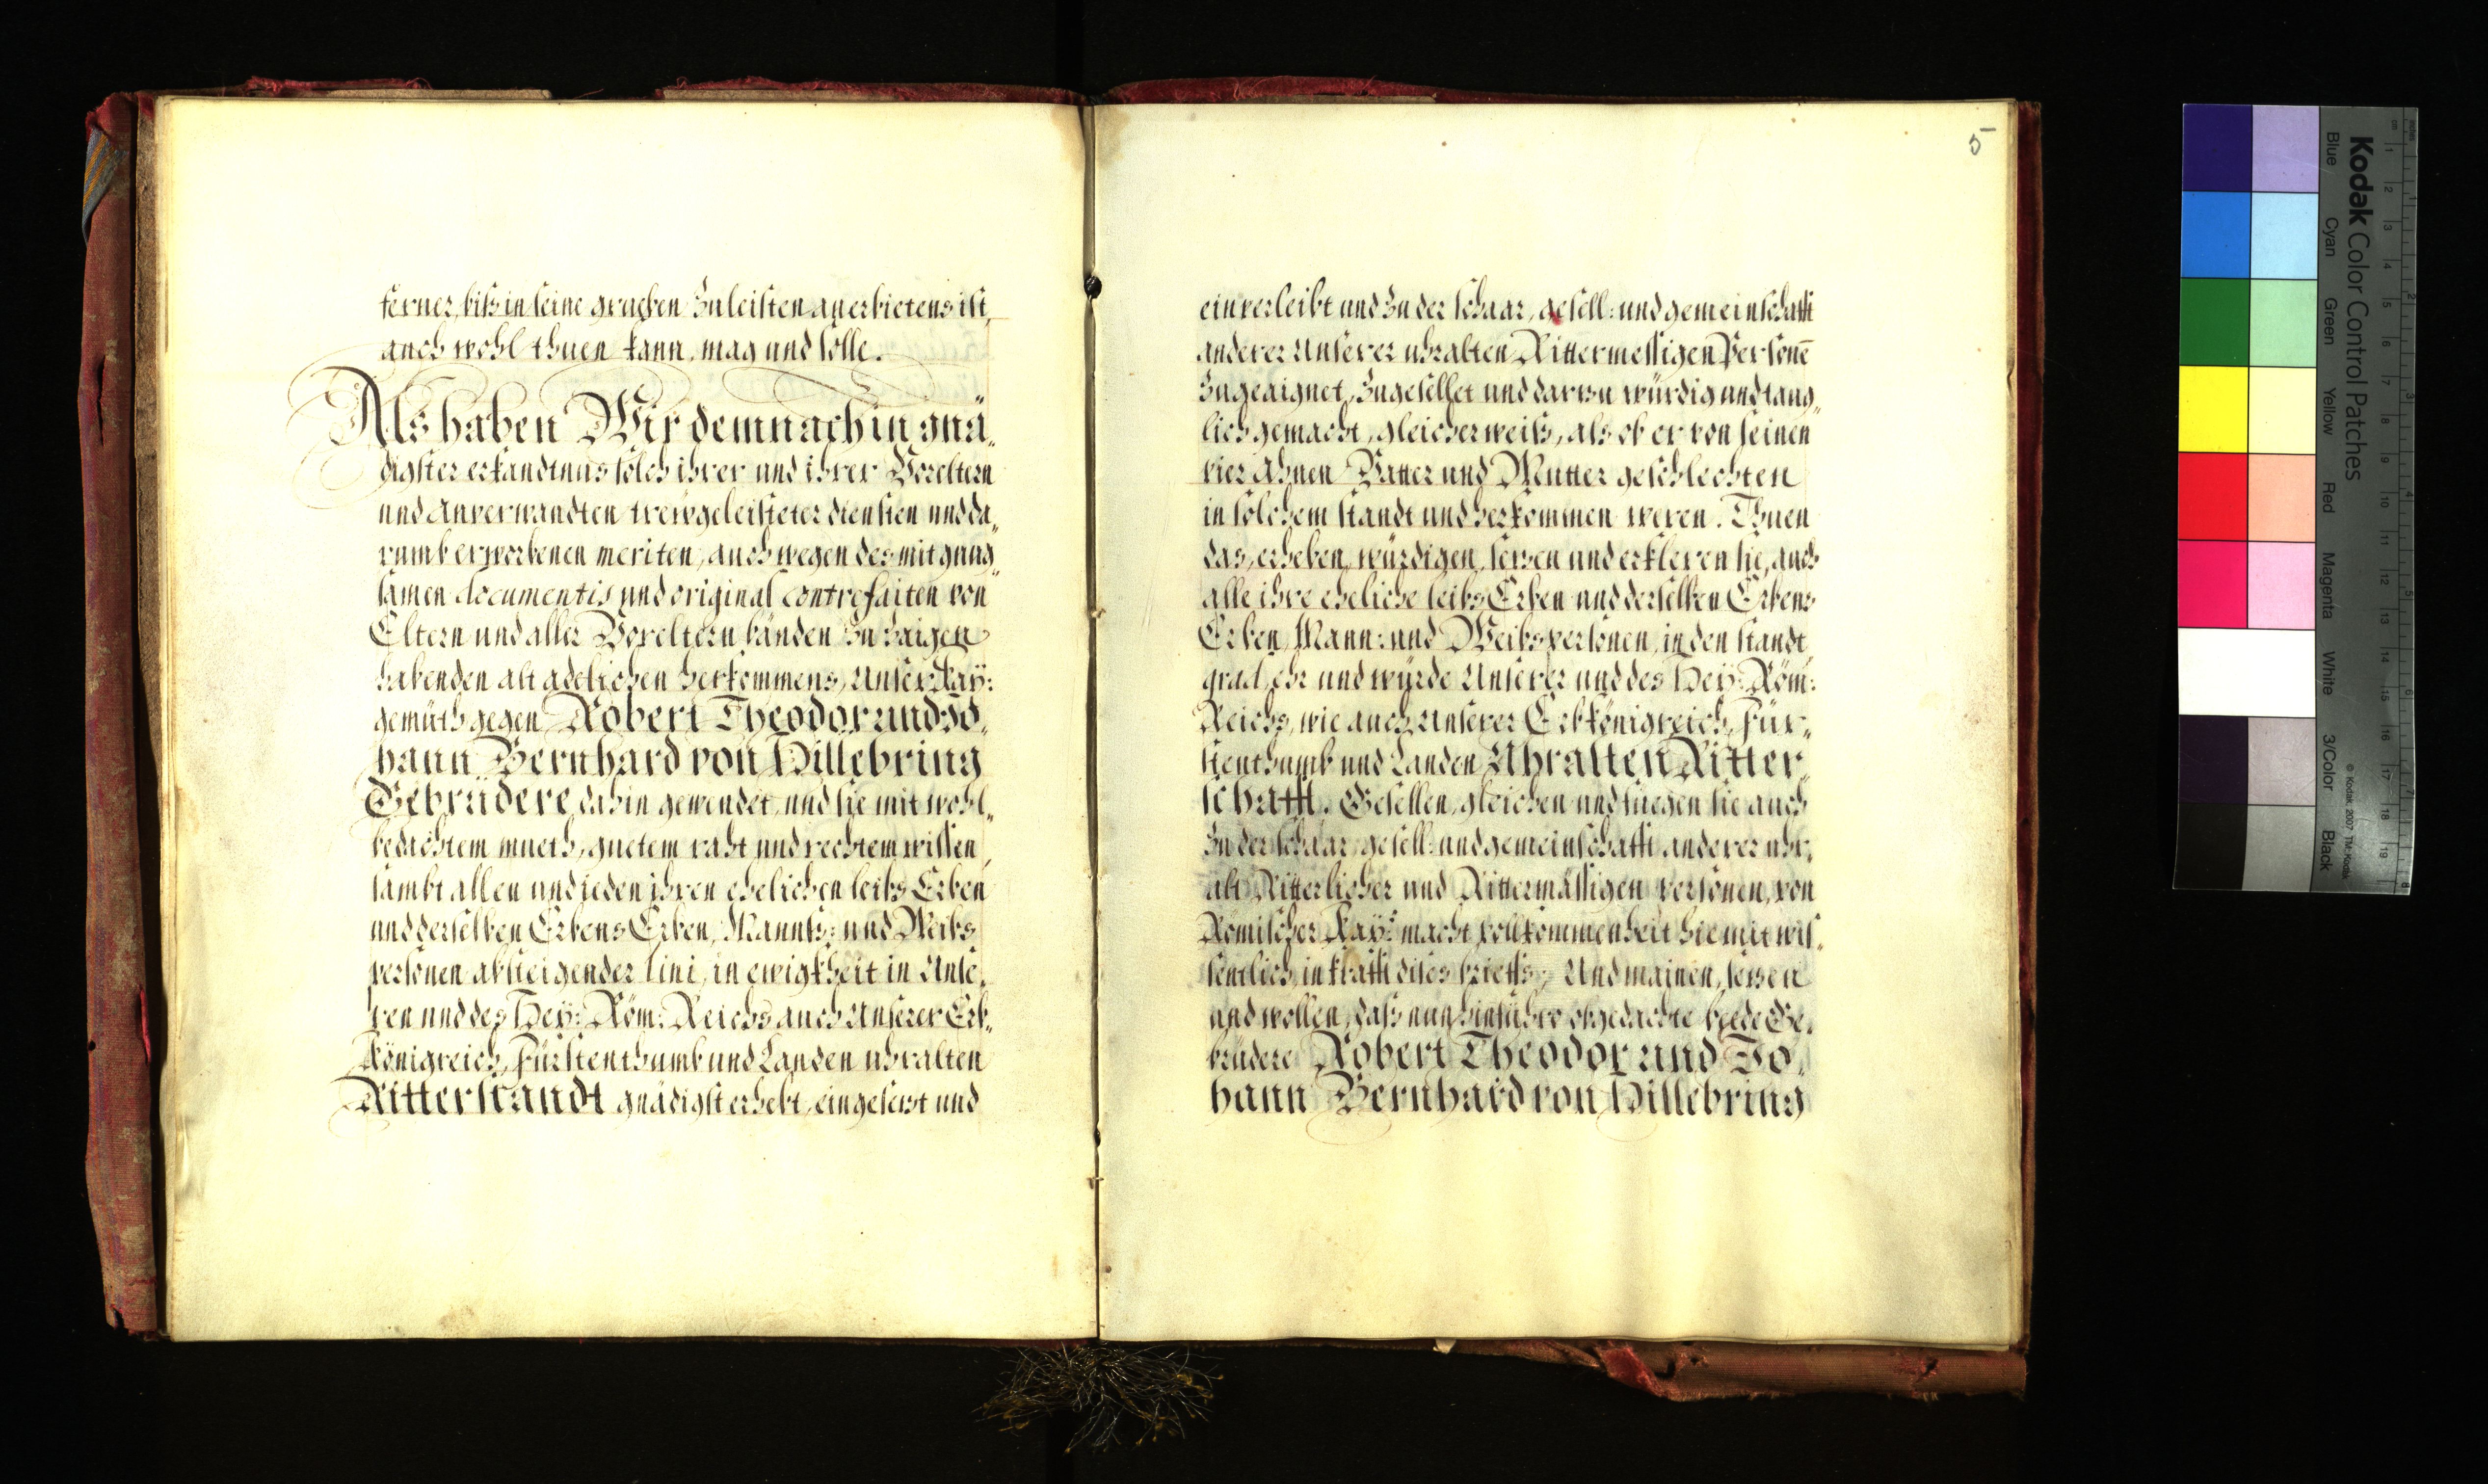 ferner, biß in seine grueben zu leisten anerbietens ist,
auch wohl thuen kann, mag und solle.
Als haben Wir demnach in gnä„
digster erkandtnus solch ihrer und ihrer Voreltern
und Anverwandten trewgeleisteter diensten und da„
rumb erworbenen meriten, auch wegen des mit gnug„
samen documentis und original contrefaiten von
Eltern und aller Voreltern handen zu zaigen
habenden alt adelichen herkommens, Unser Kay:
gemüth gegen Robert Theodor und Jo„
hann Bernhard von Hillebring
Gebrüdere dahin gewendet, und sie mit wohl„
bedachtem mueth, guetem raht und rechtem wissen,
sambt allen und ieden ihren ehelichen leibs Erben
und derselben Erbens Erben, Mannß: und Weibs
persohnen absteigender lini, in ewigkheit in Unse„
ren und des Hey: Röm: Reichs auch Unserer Erb„
Königreich, Fürstenthumb und Landen uhralten
Ritterstandt gnädigst erhebt, eingesetzt und
5
einverleibt und zu der schaar, gesell: und gemeinschafft
anderer Unserer uhralten Rittermessigen Persone
zugeaignet, zugesellet und darzu würdig und taug„
lich gemacht, gleicherweiß, als ob er von seinen
vier Ahnen Vatter und Mutter geschlechten
in solchem standt und herkommen weren. Thuen
das, erheben, würdigen, setzen und erkleren sie, auch
alle ihre eheliche leibs Erben und derselben Erbens
Erben, Mann: und Weibspersonen, in den standt,
grad, ehr und würde Unserer und des Hey: Röm:
Reichs, wie auch Unserer Erbkönigreich, Für„
stenthumb und Landen Uhralten Ritter„
schafft. Gesellen, gleichen und fuegen sie auch
zu der schaar, gesell: und gemeinschafft anderer uhr„
alt Ritterlicher und Rittermässigen personen, von
Römischer Kay: macht vollkommenheit hiemit wis„
sentlich, in krafft dises brieffs, Und mainen, setzen
und wollen, daß nun hinführo obgedachte beede Ge„
brüdere Robert Theodor und Jo„
hann Bernhard von Hillebring
Kodak Color Control Patches
Blue Cyan Green Yellow Red Magenta White 3/Color Black
© Kodak, 2007 TM: Kodak